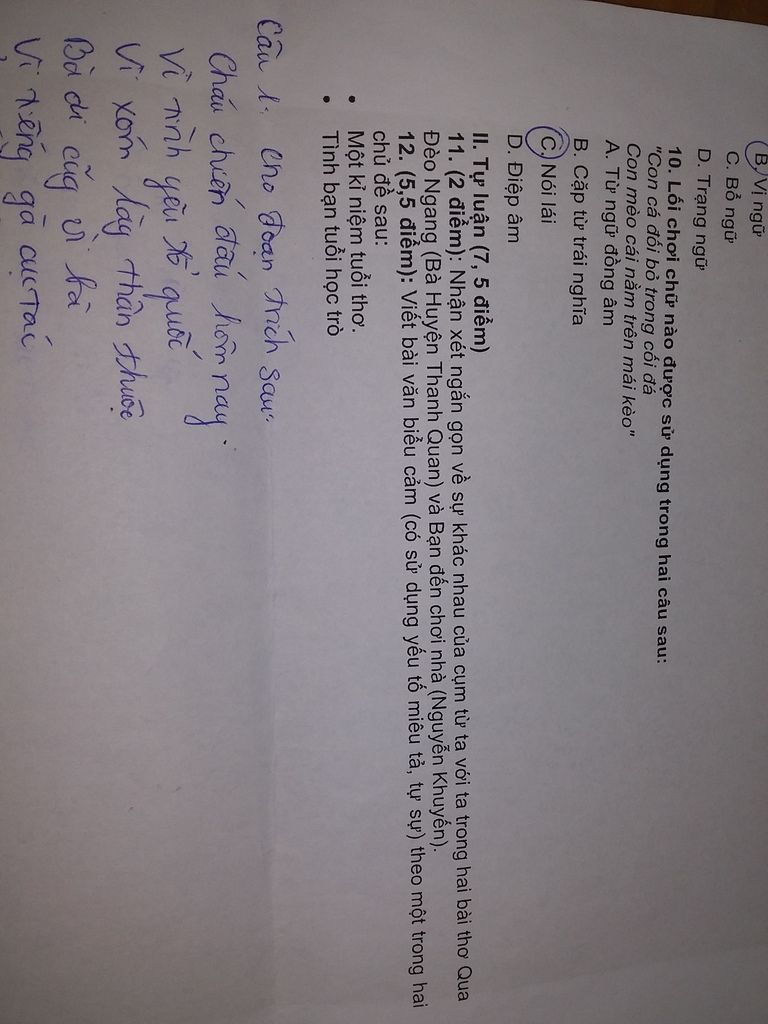 B. Vị ngữ
C. Bổ ngữ
D. Trạng ngữ
10. Lối chơi chữ nào được sử dụng trong hai câu sau:
"Con cá đối bỏ trong cối đá
Con mèo cái nằm trên mái kèo"
A. Từ ngữ đồng âm
B. Cặp từ trái nghĩa
C. Nói lái
D. Điệp âm
II. Tự luận (7, 5 điểm)
11. (2 điểm): Nhận xét ngắn gọn về sự khác nhau của cụm từ ta với ta trong hai bài thơ Qua
Đèo Ngang (Bà Huyện Thanh Quan) và Bạn đến chơi nhà (Nguyễn Khuyến).
12. (5,5 điểm): Viết bài văn biểu cảm (có sử dụng yếu tố miêu tả, tự sự) theo một trong hai
chủ đề sau:
• Một kỉ niệm tuổi thơ.
• Tình bạn tuổi học trò
Câu 1: Cho đoạn trích sau:
Cháu chiến đấu hôm nay.
Vì tình yêu tổ quốc
Vì xóm làng thân thuộc
Bà ơi cũng vì bà
Vì tiếng gà cục tác